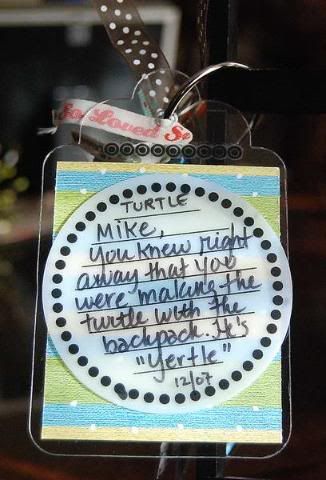 So Loved S
TURTLE
Mike,
you knew right
away that you
were making the
turtle with the
backpack. He's
"Yertle"
12/07